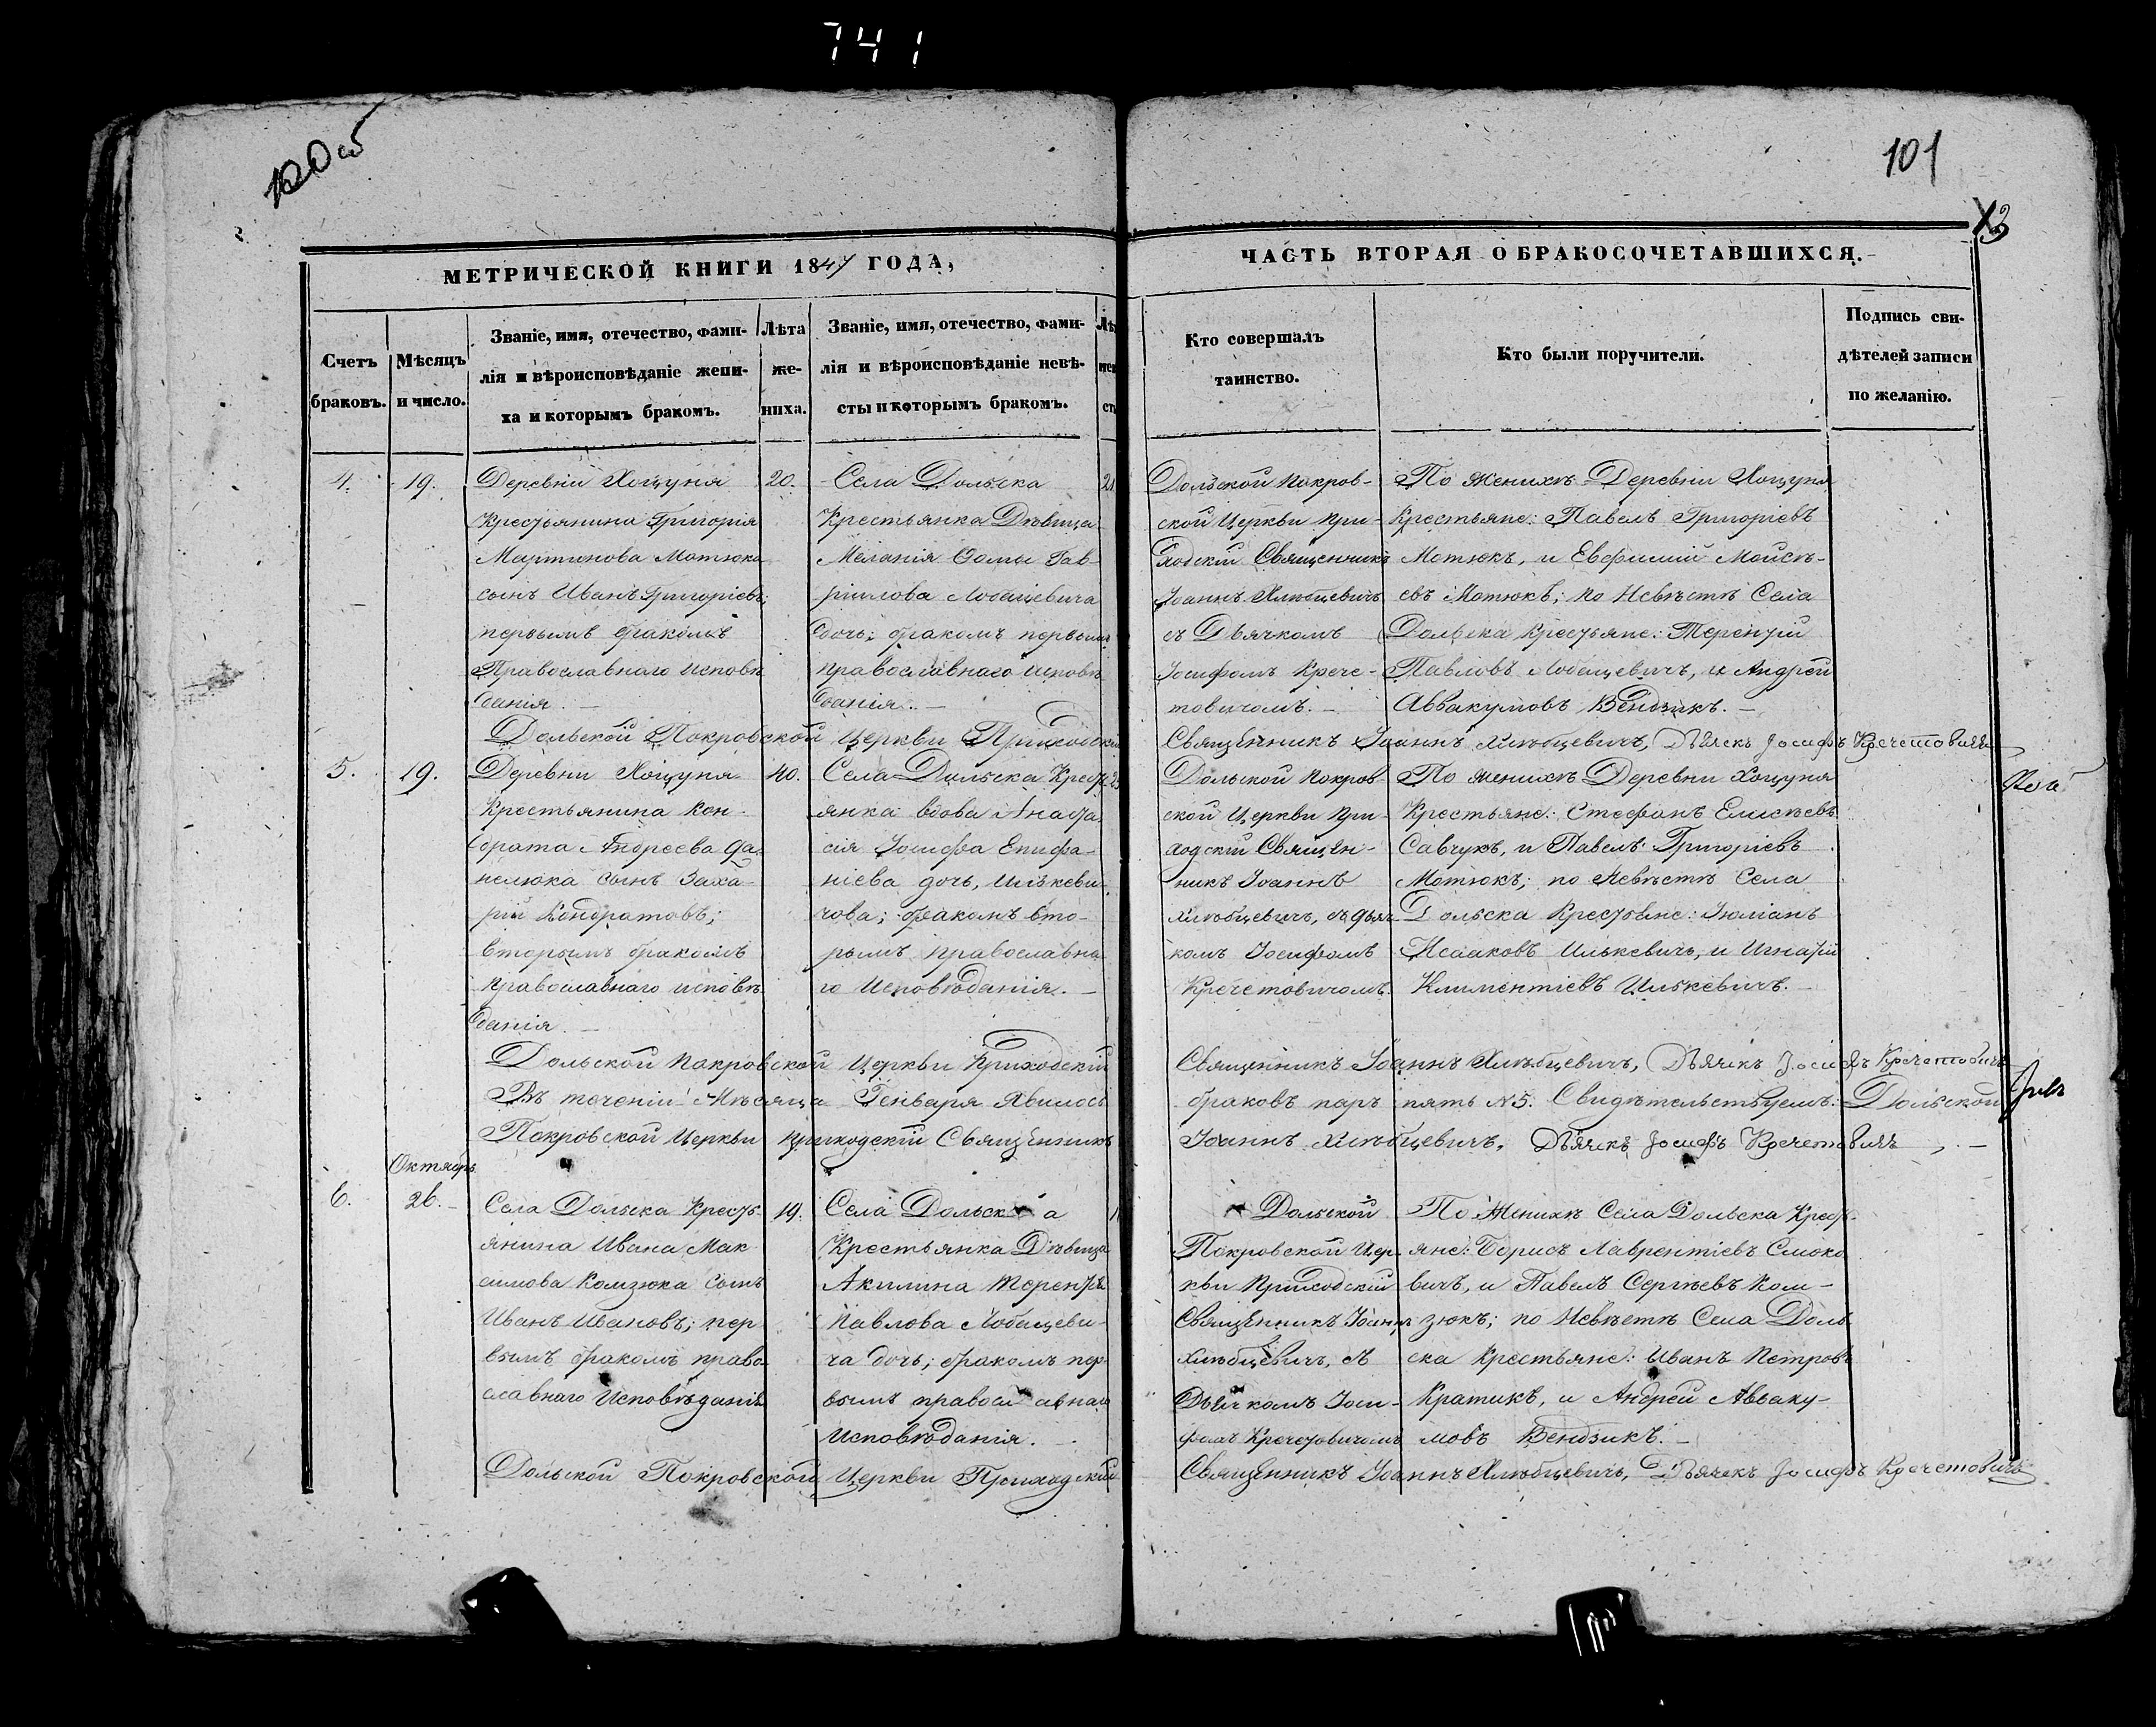 741
100 об
101
МЕТРИЧЕСКОЙ КНИГИ 1847 ГОДА,
Счетъ браковъ.
Мѣсяцъ и число.
Званіе, имя, отечество, фами-
лія и вѣроисповѣданіе жени-
ха и которымъ бракомъ.
Лѣта
же-
ниха.
Званіе, имя, отечество, фами-
лія и вѣроисповѣданіе невѣ-
сты и которымъ бракомъ.
ЧАСТЬ ВТОРАЯ О БРАКОСОЧЕТАВШИХСЯ.
Кто совершалъ
таинство.
Кто были поручители.
Подпись сви-
дѣтелей записи
по желанію.
4.
19.
Деревни Хощуня
Крестьянина Григорія
Мартинова Мотюка
сынъ Иванъ Григоріевъ;
первымъ бракомъ
Православнаго исповѣ
данія. —
20.
Села Дольска
Крестьянка Дѣвица
Меланія Ѳомы Гав-
ріилова Лобацевича
дочь; бракомъ первымъ
православнаго исповѣ
данія. —
21
Дольской Покров-
ской Церкви При-
ходскій Священникъ
Іоаннъ Хлѣбцевичъ
съ Дьячкомъ
Іосифомъ Крече-
товичомъ. —
По женихѣ Деревни Хощуня
Крестьяне: Павелъ Григоріевъ
Мотюкъ, и Евфимій Моисѣ-
евъ Мотюкъ; по Невѣстѣ Села
Дольска Крестьяне: Терентій
Павловъ Лобацевичъ, и Андрей
Аввакумовъ Вендзикъ. —
Дольской Покровской Церкви Приходскій Священникъ Іоаннъ Хлѣбцевичъ, Дьячекъ Іосифъ Кречетовичъ
5.
19.
Деревни Хощуня
Крестьянина Кон-
драта Андреева Да-
нелюка сынъ Заха-
рій Кондратовъ;
вторымъ бракомъ
православнаго исповѣ
данія. —
40.
Села Дольска Кресть
янка вдова Анаста
сія Іосифа Епифа-
ніева дочь, Илькеви-
чова; бракомъ вто-
рымъ православна
го Исповѣданія. —
Дольской Покров-
ской Церкви При-
ходскій Священ-
никъ Іоаннъ
Хлѣбцевичъ, съ дьяч
комъ Іосифомъ
Кречетовичомъ.
По женихѣ Деревни Хощуня
Крестьяне: Стефанъ Елисѣевъ
Савчукъ, и Павелъ Григоріевъ
Мотюкъ; по Невѣстѣ Села
Дольска Крестьяне: Іюліанъ
Исааковъ Илькевичъ, и Игнатій
Климентіевъ Илькевичъ. —
Дольской Покровской Церкви Приходскій Священникъ Іоаннъ Хлѣбцевичъ, Дьячекъ Іосифъ Кречетовичъ
Въ теченіи Мѣсяца Генваря явилось браковъ паръ пять №5. Свидѣтельствуемъ: Дольской
Покровской Церкви Приходскій Священникъ Іоаннъ Хлѣбцевичъ. Дьячекъ Іосифъ Кречетовичъ. —
Октябрь
6.
26. —
Села Дольска Кресть
янина Ивана Мак
симова Комзюка сынъ
Иванъ Ивановъ; пер
вымъ бракомъ право
славнаго Исповѣданія
19.
Села Дольска
Крестьянка Дѣвица
Акилина Терентія
Павлова Лобацеви-
ча дочь; бракомъ пер
вымъ православнаго
Исповѣданія. —
Дольской
Покровской Цер-
кви Приходскій
Священникъ Іоаннъ
Хлѣбцевичъ, съ
Дьячкомъ Іоси-
фомъ Кречетовичомъ
По Женихѣ Села Дольска Кресть-
яне: Борисъ Лаврентіевъ Смоко
вичъ, и Павелъ Сергѣевъ Ком-
зюкъ; по Невѣстѣ Села Доль
ска Крестьяне: Иванъ Петровъ
Кратикъ, и Андрей Авваку-
мовъ Вендзикъ. —
Дольской Покровской Церкви Приходскій Священникъ Іоаннъ Хлѣбцевичъ, Дьячекъ Іосифъ Кречетовичъ